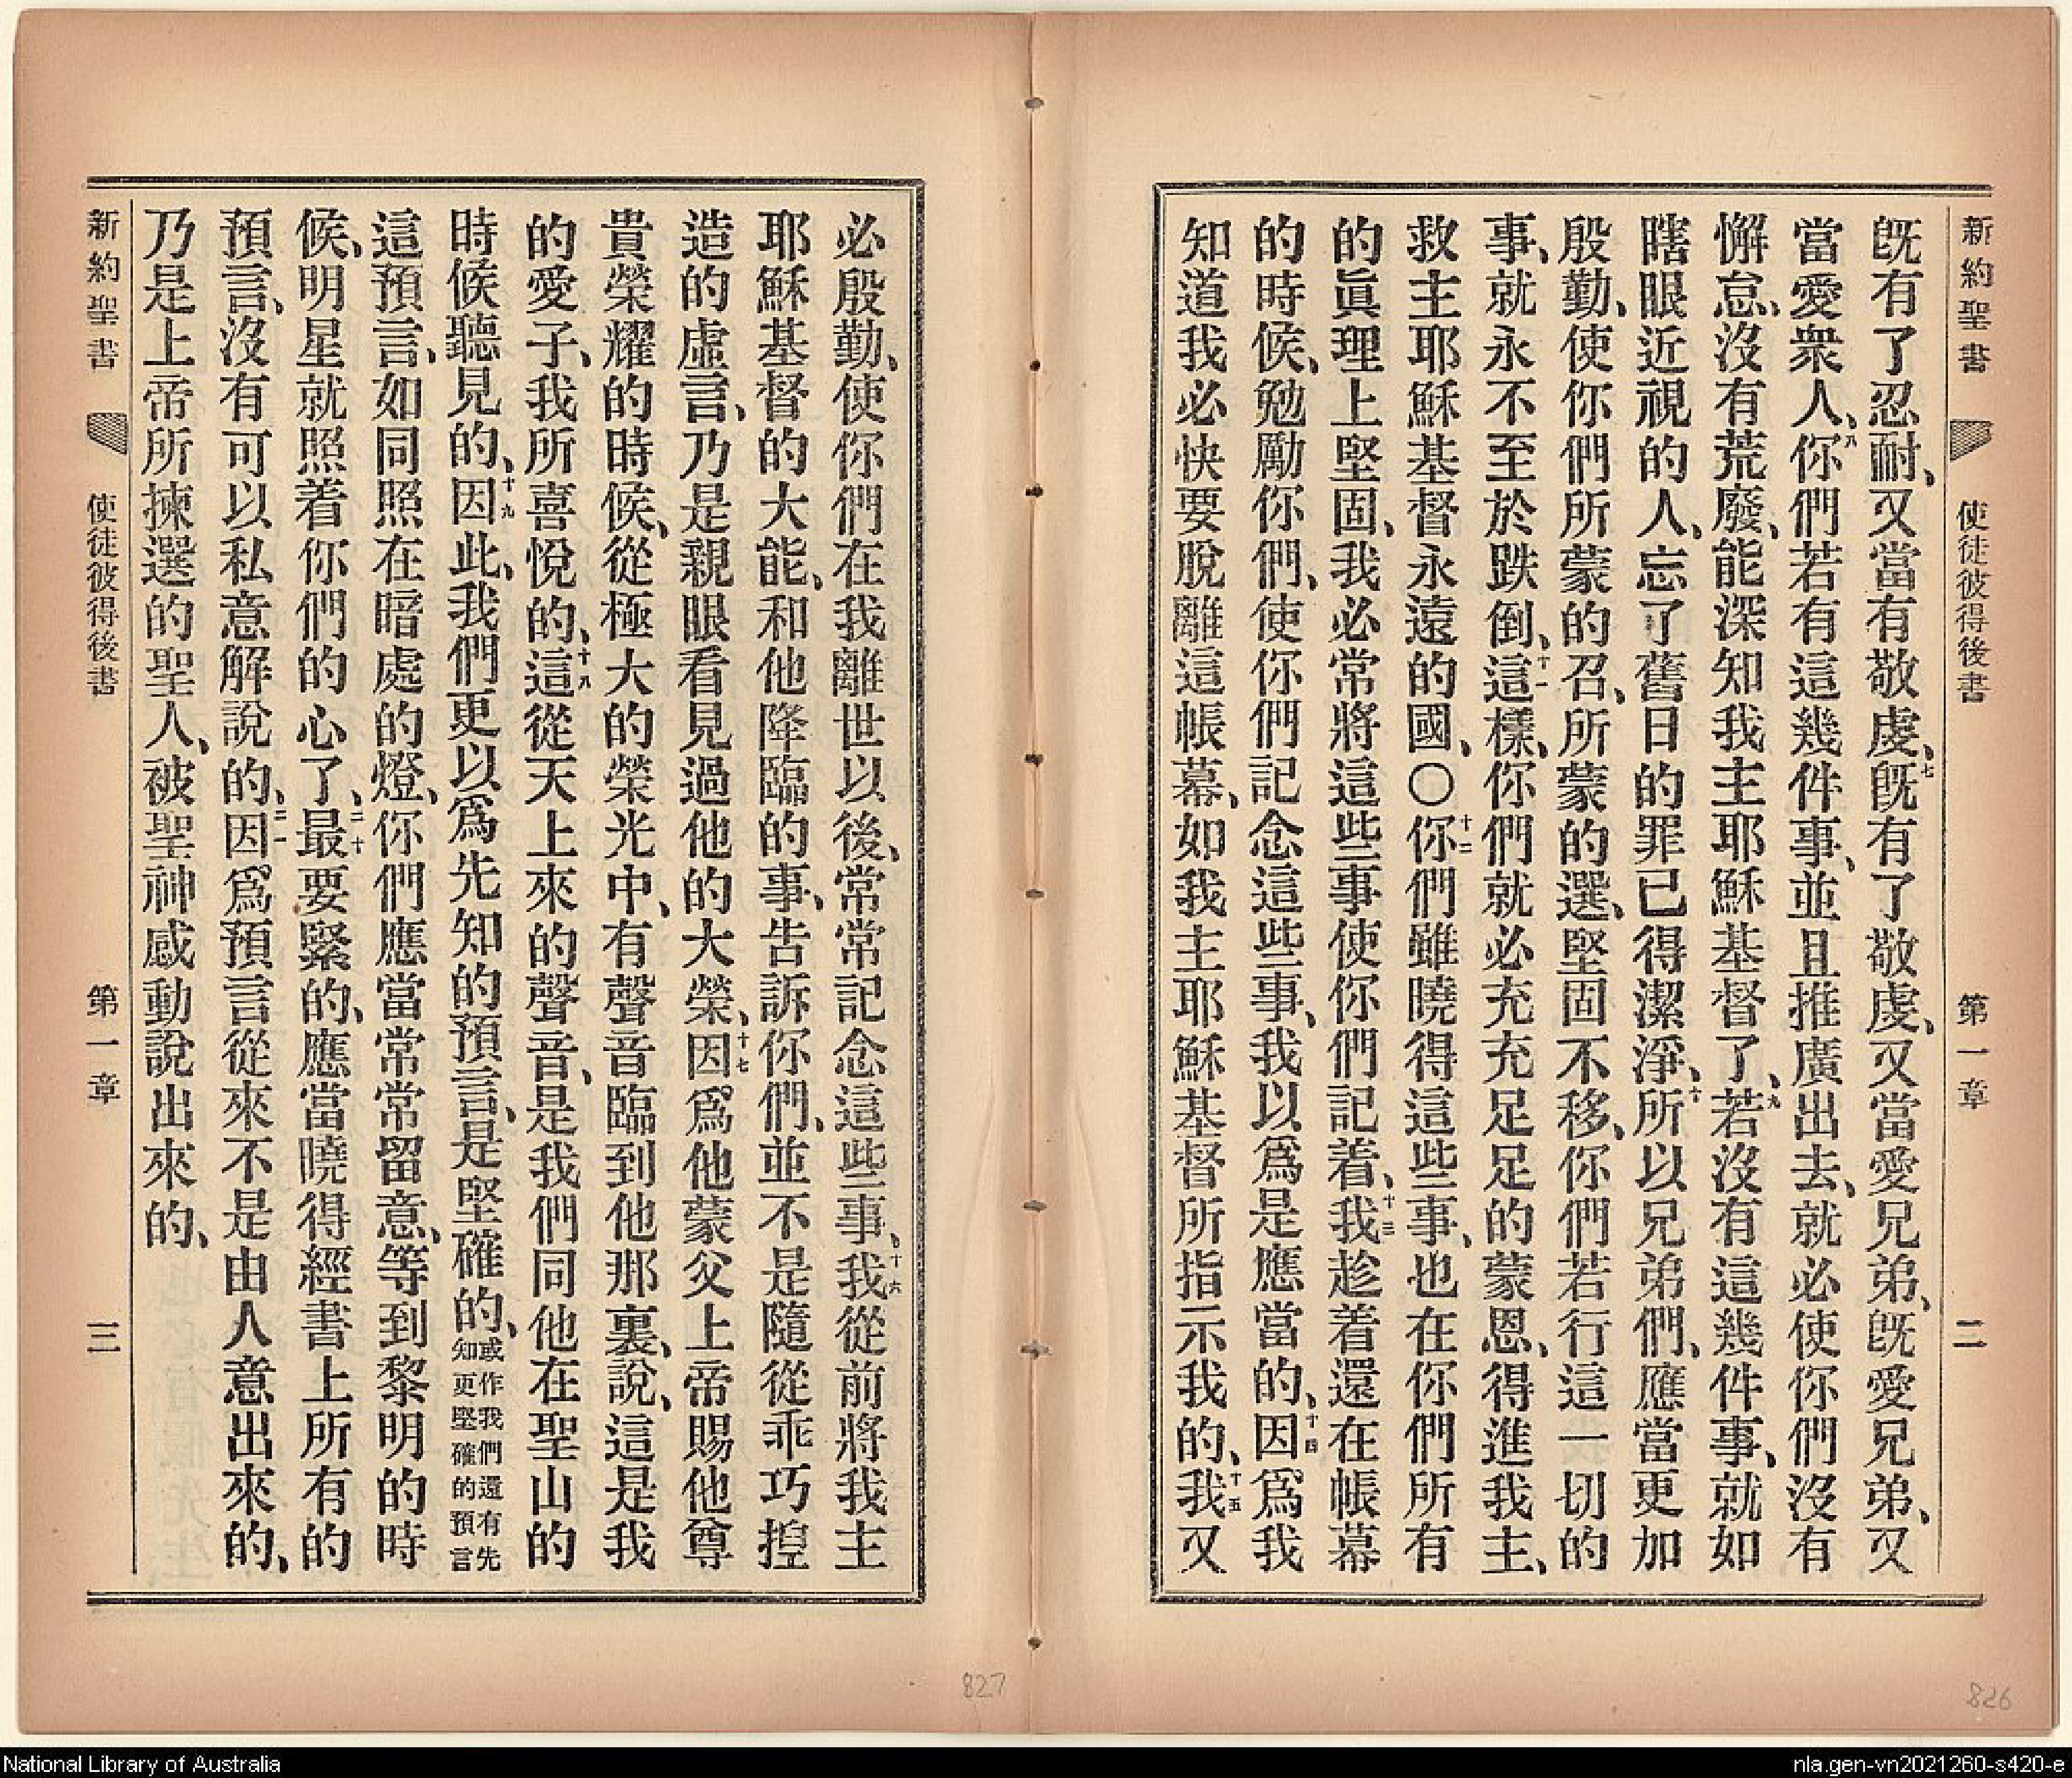 新約聖書 使徒彼得後書 第一章 二
旣有了忍耐、又當有敬虔、七旣有了敬虔、又當愛兄弟、旣愛兄弟、又
當愛衆人、八你們若有這幾件事、並且推廣出去、就必使你們沒有
懈怠、沒有荒廢、能深知我主耶穌基督了、九若沒有這幾件事、就如
瞎眼近視的人、忘了舊日的罪已得潔淨、十所以兄弟們、應當更加
殷勤、使你們所蒙的召、所蒙的選、堅固不移、你們若行這一切的
事、就永不至於跌倒、十一這樣、你們就必充充足足的蒙恩、得進我主、
救主耶穌基督永遠的國、〇十二你們雖曉得這些事、也在你們所有
的眞理上堅固、我必常將這些事使你們記着、十三我趁着還在帳幕
的時候、勉勵你們、使你們記念這些事、我以爲是應當的、十四因爲我
知道我必快要脫離這帳幕、如我主耶穌基督所指示我的、十五我又
必殷勤、使你們在我離世以後、常常記念這些事、十六我從前將我主
耶穌基督的大能、和他降臨的事、告訴你們、並不是隨從乖巧揑
造的虛言、乃是親眼看見過他的大榮、十七因爲他蒙父上帝賜他尊
貴榮耀的時候、從極大的榮光中、有聲音臨到他那裏、說、這是我
的愛子、我所喜悅的、十八這從天上來的聲音、是我們同他在聖山的
時候聽見的、十九因此、我們更以爲先知的預言、是堅確的、或作我們還有先知更堅確的預言
這預言、如同照在暗處的燈、你們應當常常留意、等到黎明的時
候、明星就照着你們的心了、二十最要緊的、應當曉得經書上所有的
預言、沒有可以私意解說的、二一因爲預言從來不是由人意出來的、
乃是上帝所揀選的聖人、被聖神感動說出來的、
新約聖書 使徒彼得後書 第一章 三
827
826
National Library of Australia
nla.gen-vn2021260-s420-e